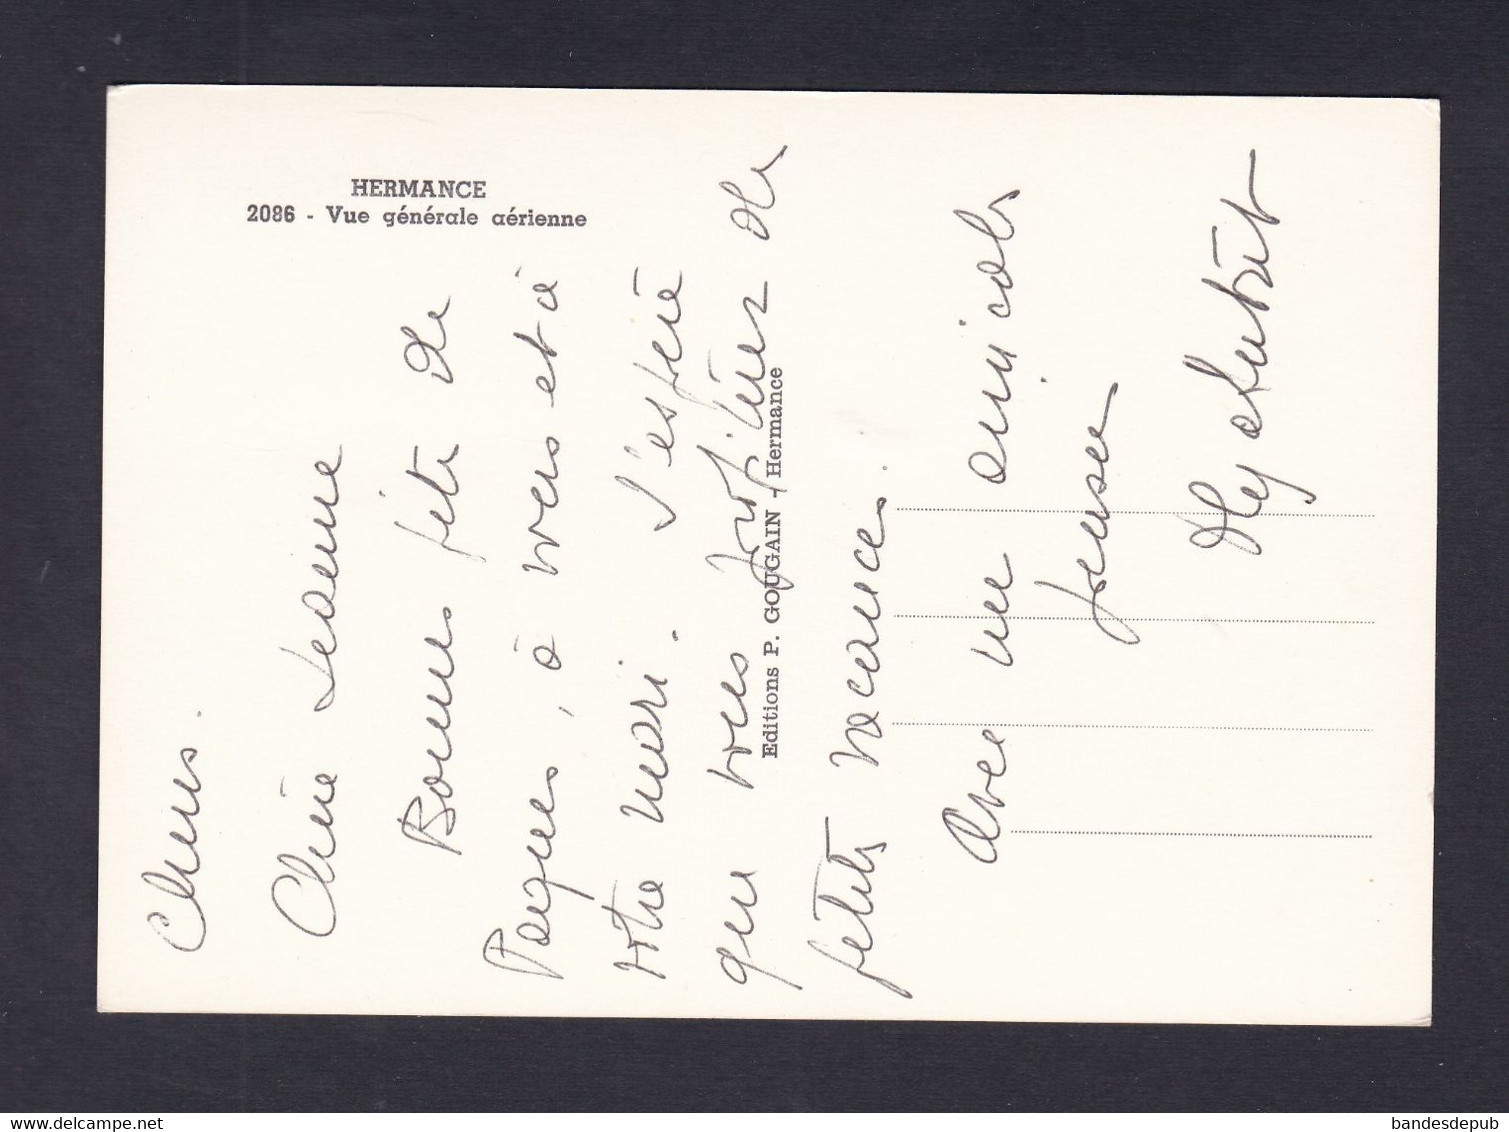 HERMANCE
2086 - Vue générale aérienne
Editions P. GOUGAIN - Hermance
Chère Jeanne
Bonnes fête de
Pâques, à vous et à
votre mari. J'espère
que vous profiterez de
petites vacances.
Avec une amicale
pensée
delcampe.net
bandesdepub